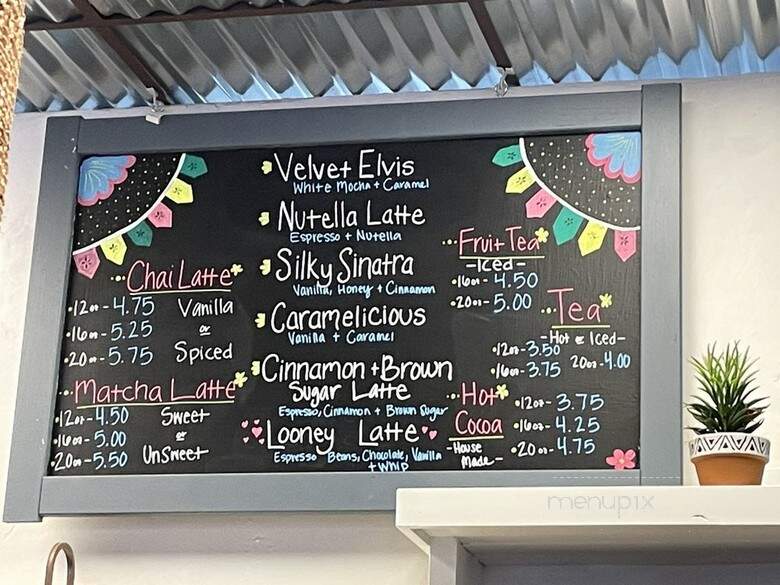 Velvet Elvis
White Mocha + Caramel
Nutella Latte
Espresso + Nutella
Silky Sinatra
Vanilla, Honey + Cinnamon
Caramelicious
Vanilla + Caramel
Cinnamon + Brown
Sugar Latte
Espresso, Cinnamon + Brown Sugar
Looney Latte
Espresso Beans, Chocolate, Vanilla
+ Whip
Chai Latte
•12oz - 4.75 Vanilla
•16oz - 5.25 or
•20oz - 5.75 Spiced
Matcha Latte
•12oz - 4.50 Sweet
•16oz - 5.00 or
•20oz - 5.50 UnSweet
Fruit Tea
- Iced -
•16oz - 4.50
•20oz - 5.00
Tea
- Hot or Iced -
•12oz - 3.50
•16oz - 3.75 20oz - 4.00
Hot
Cocoa
- House
Made -
•12oz - 3.75
•16oz - 4.25
•20oz - 4.75
menupix